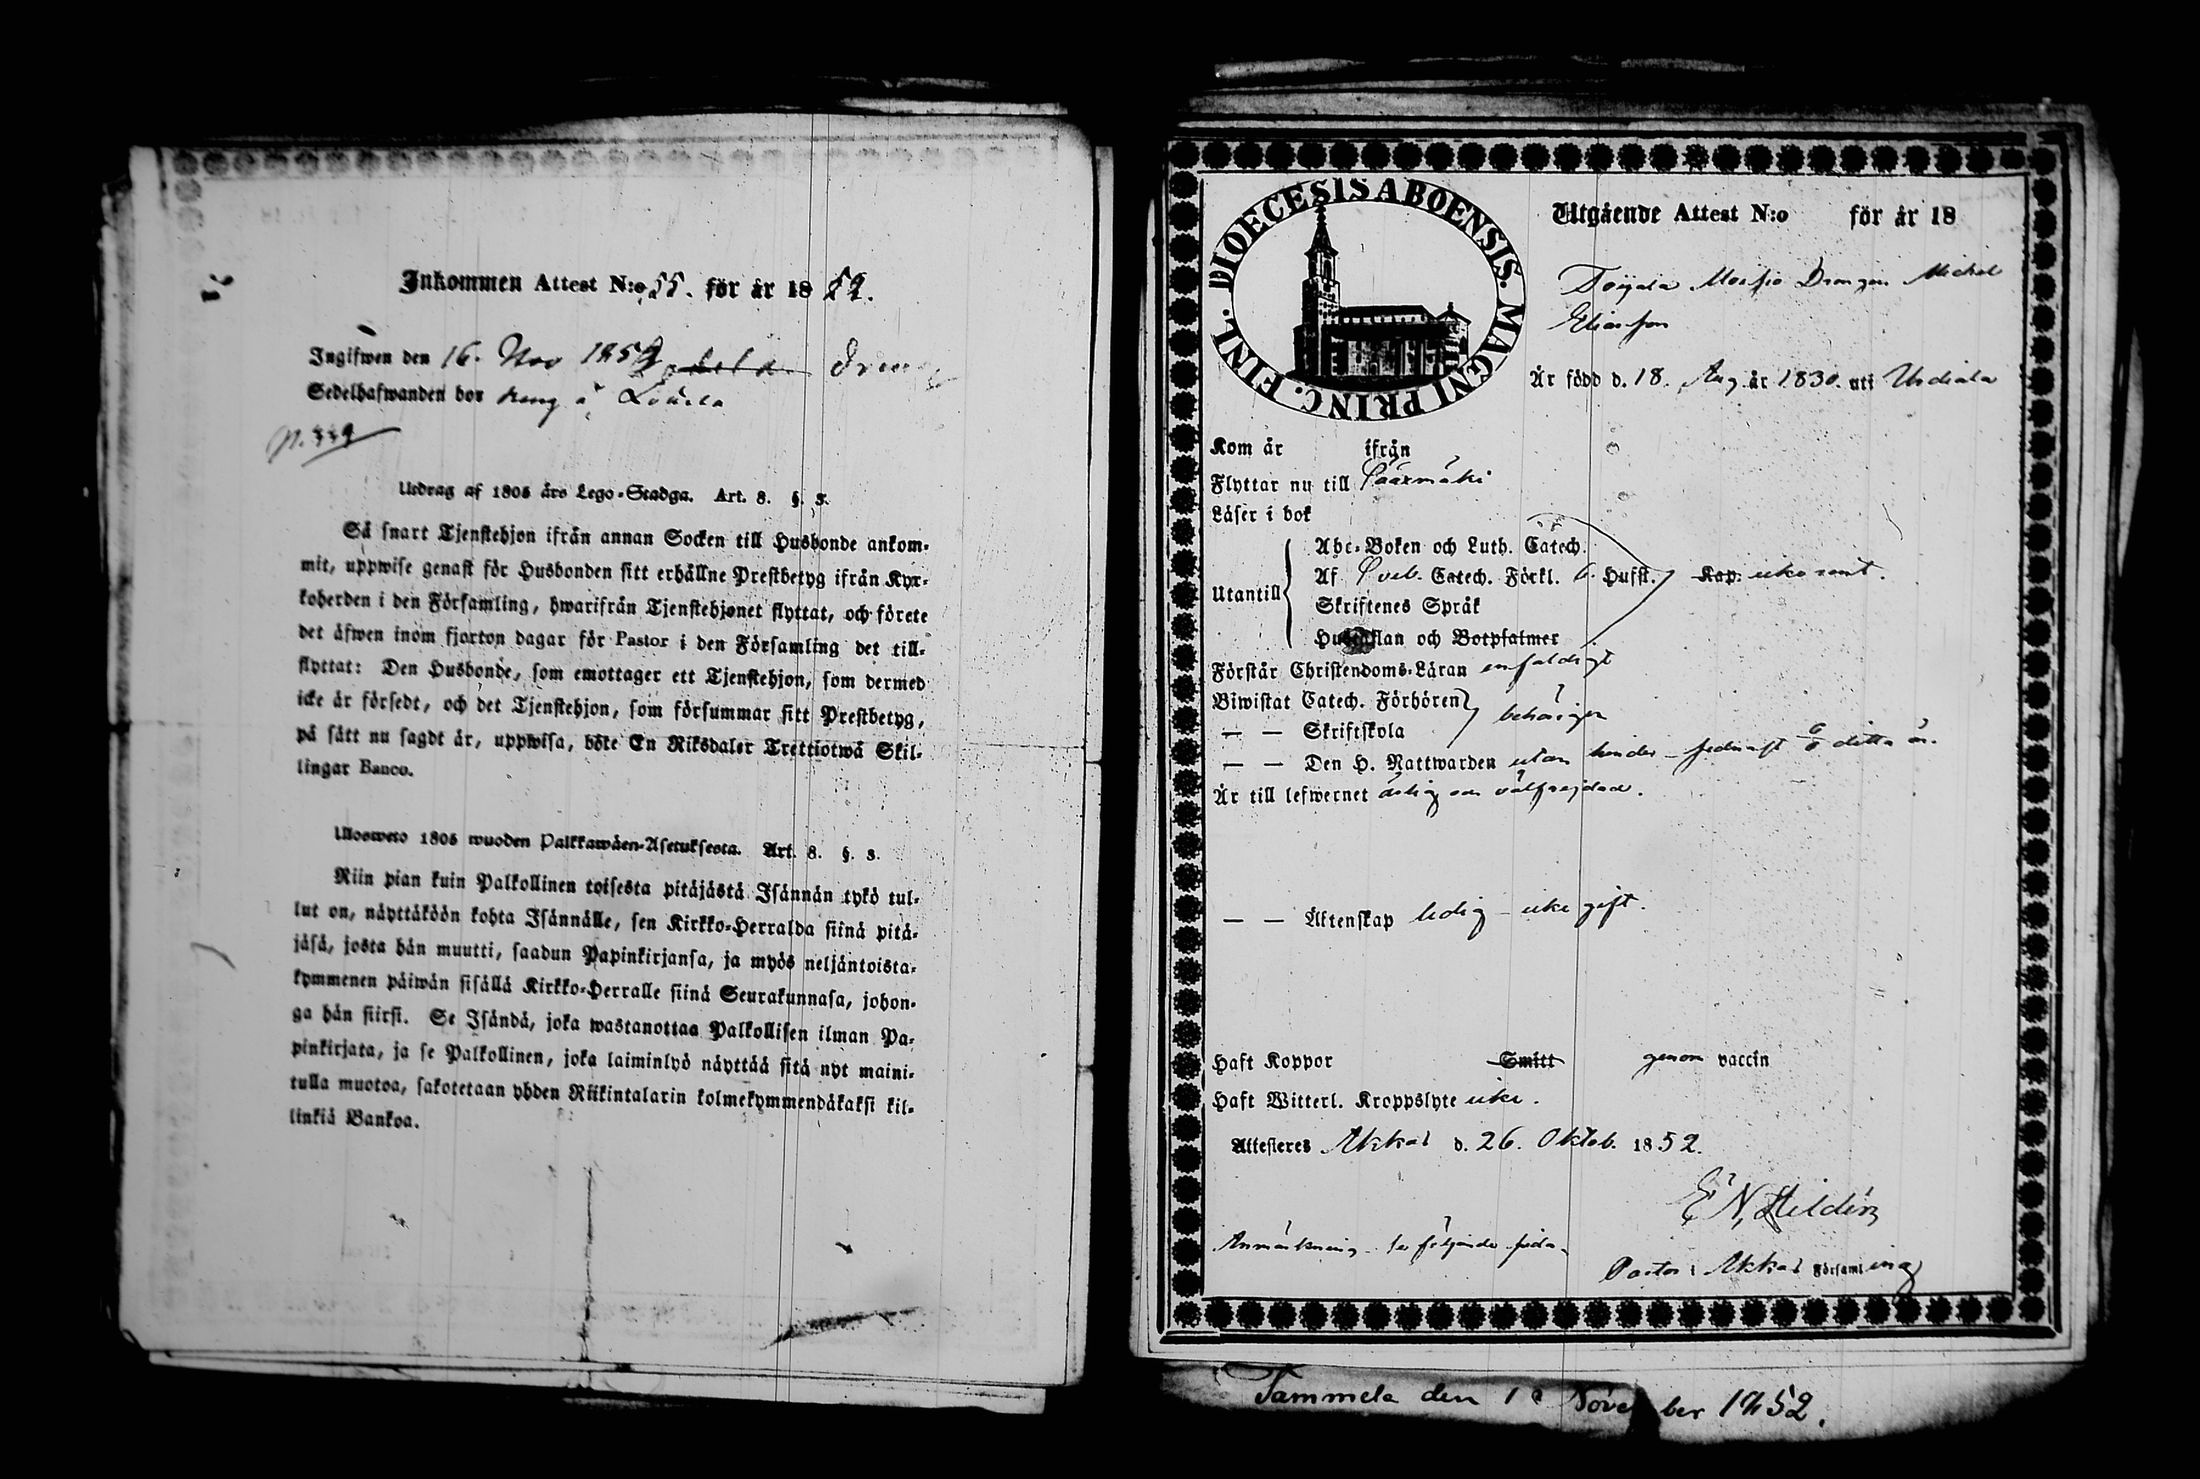 Inkommen Attest N:o 55. för år 1852.
Ingifwen den 16. Nov 1852
Sedelhafwanden bor
p. 339
Utdrag af 1805 års Lego-Stadga. Art. 8. §. 3.
Så snart Tjenstehjon ifrån annan Socken till Husbonde ankom-
mit, uppwise genast för Husbonden sitt erhållne Prestbetyg ifrån Kyr-
koherden i den Församling, hwarifrån Tjenstehjonet flyttat, och förete
det äfwen inom fjorton dagar för Pastor i den Församling det till-
flyttat: Den Husbonde, som emottager ett Tjenstehjon, som dermed
icke är försedt, och det Tjenstehjon, som försummar sitt Prestbetyg,
på sätt nu sagdt är, uppwisa, böte En Riksdaler Trettiotwå Skil-
lingar Banco.
Ulosweto 1805 wuoden Palkkawäen-Asetuksesta. Art. 8. §. 3.
Niin pian kuin Palkollinen toisesta pitäjästä Isännän tykö tul-
lut on, näyttäköön kohta Isännälle, sen Kirkko-Herralda siinä pitä-
jäsä, josta hän muutti, saadun Papinkirjansa, ja myös neljäntoista-
kymmenen päiwän sisällä Kirkko-Herralle siinä Seurakunnasa, johon-
ga hän siirsi. Se Isändä, joka wastanottaa Palkollisen ilman Pa-
pinkirjata, ja se Palkollinen, joka laiminlyö näyttää sitä nyt maini-
tulla muotoa, sakotetaan yhden Riikintalarin kolmekymmendäkaksi kil-
linkiä Bankoa.
DIOECESIS ABOENSIS. MAGNI PRINC. FINL.
Utgående Attest N:o för år 18
Toijala Drengen Michel
Eliasson
Är född d. 18. Aug år 1830. uti Urdiala
Kom år ifrån
Flyttar nu till Sääxmäki
Läser i bok
Utantill
Abc-Boken och Luth. Catech.
Af Sveb. Catech. Förkl. Husst. Kap.
Skriftenes Språk
Hustaflan och Botpsalmer
Förstår Christendoms-Läran enfaldigt
Biwistat Catech. Förhören
— — Skriftskola behörigen
— — Den H. Nattwarden utan hinder - detta år.
Är till lefwernet ärlig och välfrejdad.
— — Äktenskap ledig - icke gift.
Haft Koppor Smitt genom vaccin
Haft Witterl. Kroppslyte icke.
Attesteres Akkas d. 26. Oktob. 1852.
E N Hildén
Anmärkning se följande sida
Pastor i Akkas Församling
Tammela den November 1852.